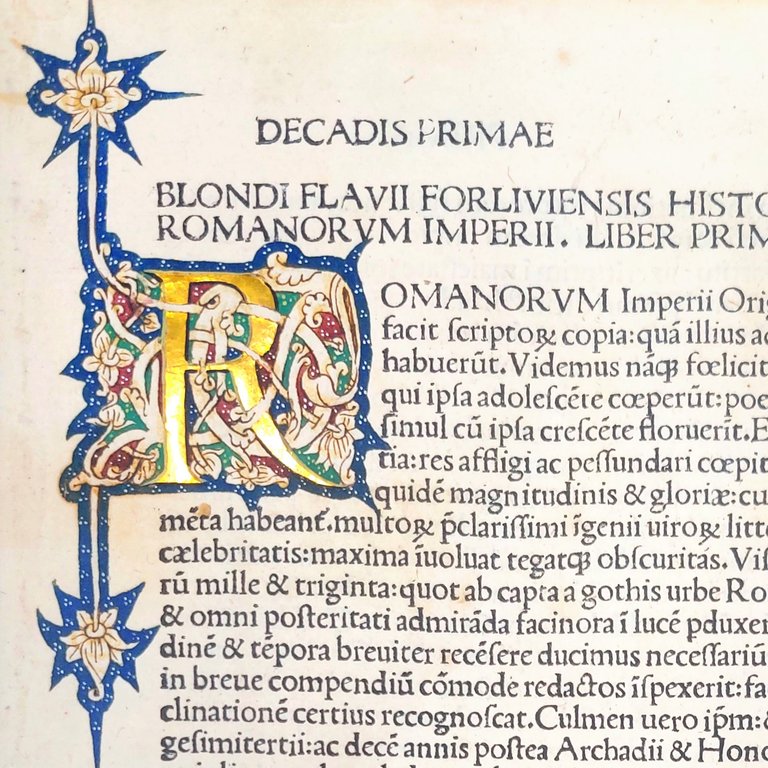 DECADIS PRIMAE
BLONDI FLAVII FORLIVIENSIS HISTO
ROMANORVM IMPERII. LIBER PRIM
ROMANORVM Imperii Orig
facit ſcriptoꝝ copia:quã illius ad
habuerũt.Videmus nãqꝫ fœlicit
qui ipſa adoleſcẽte cœperũt:poe
ſimul cũ ipſa creſcẽte floruerĩt.E
tia:res affligi ac peſſundari cœpit
quidẽ magnitudinis & gloriæ:cu
mẽta habeant.multoꝝ p̃clariſſimi ĩgenii uiroꝝ litte
cælebritatis:maxima ĩuoluat tegatqꝫ obſcuritás.Viſ
rũ mille & triginta:quot ab capta a gothis urbe Ro
& omni poſteritati admirãda facinora ĩ lucẽ pduxer
dinẽ & tẽpora breuiter recẽſere ducimus neceſſariũ
in breue compendiũ cõmode redactos ĩſpexerit:fa
clinationẽ certius recognoſcat.Culmen uero ip̃m:
geſimitertii:ac decẽ annis poſtea Archadii & Hono